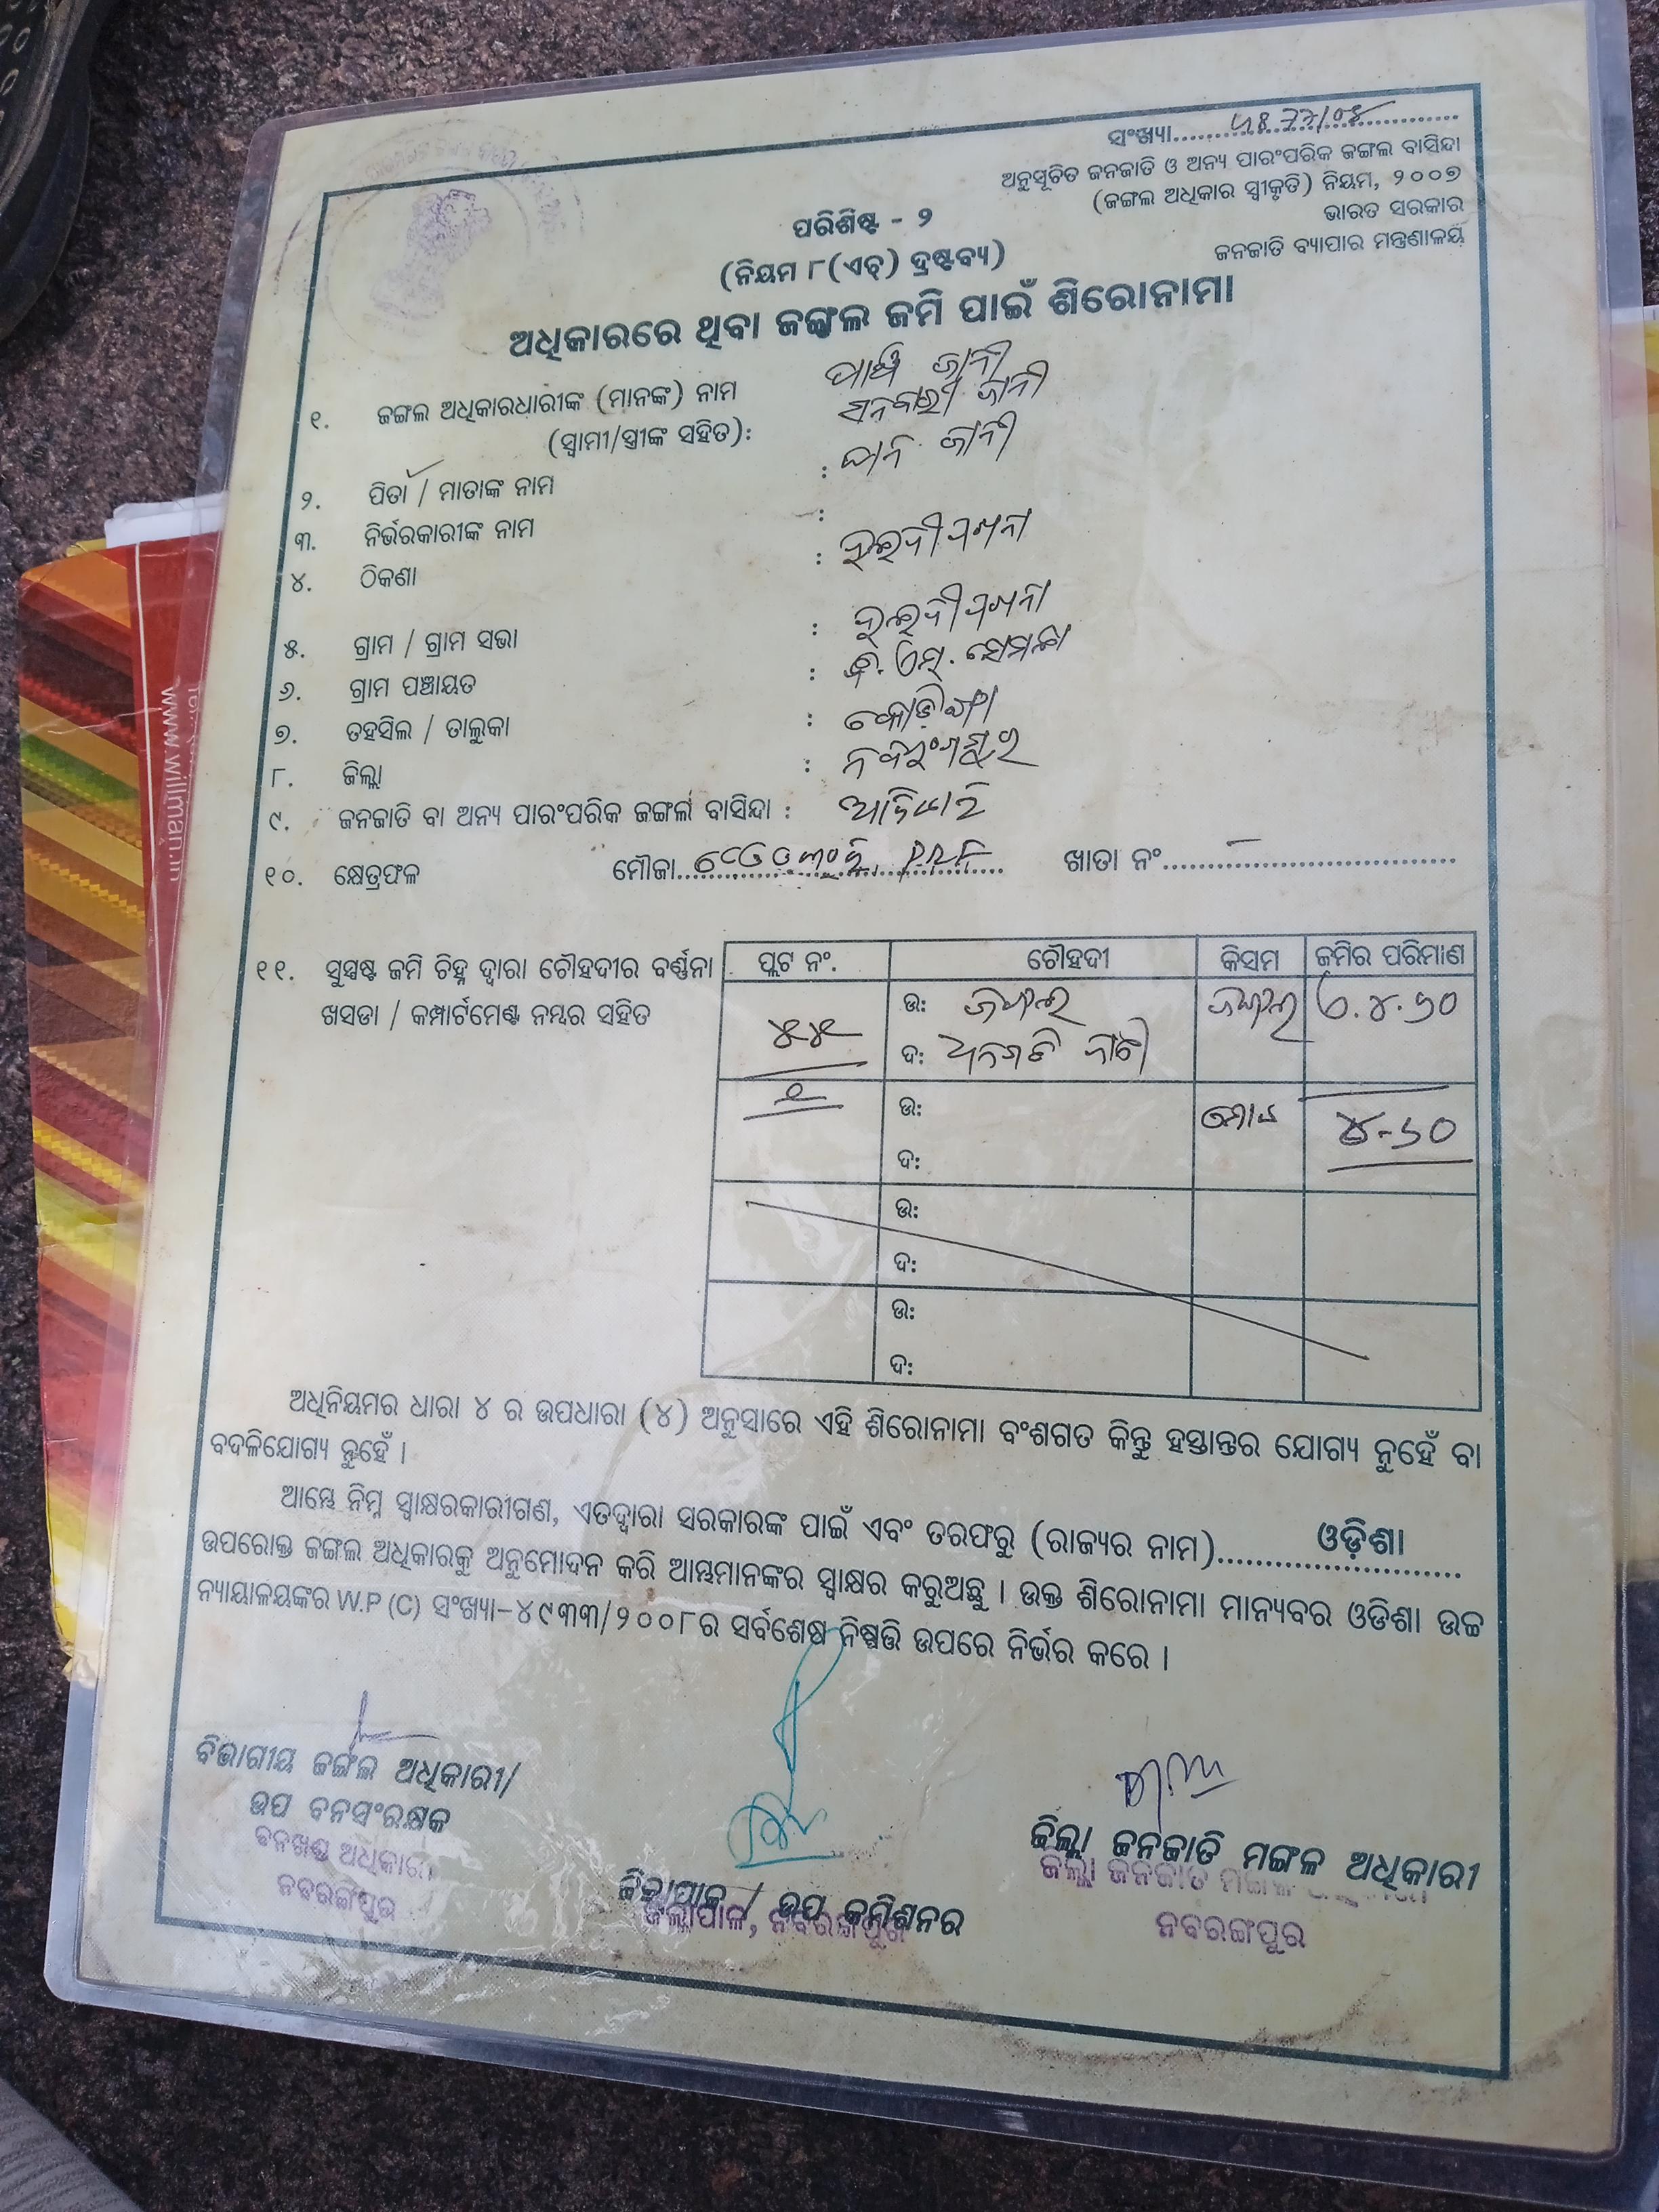 ସଂଖ୍ୟା
ଅନୁସୂଚିତ ଜନଜାତି ଓ ଅନ୍ୟ ପାରଂପରିକ ଜଙ୍ଗଲ ବାସିନ୍ଦା
(ଜଙ୍ଗଲ ଅଧିକାର ସ୍ୱୀକୃତି) ନିୟମ, ୨୦୦୭
ଭାରତ ସରକାର
ଜନଜାତି ବ୍ୟାପାର ମନ୍ତ୍ରଣାଳୟ
ପରିଶିଷ୍ଟ - ୨
(ନିୟମ ୮(ଏଚ୍) ଦ୍ରଷ୍ଟବ୍ୟ)
ଅଧିକାରରେ ଥିବା ଜଙ୍ଗଲ ଜମି ପାଇଁ ଶିରୋନାମା
୧. ଜଙ୍ଗଲ ଅଧିକାରଧାରୀଙ୍କ (ମାନଙ୍କ) ନାମ ଜାନୀ
(ସ୍ୱାମୀ/ସ୍ତ୍ରୀଙ୍କ ସହିତ): ଜାନୀ
୨. ପିତା / ମାତାଙ୍କ ନାମ : ଜାନୀ
୩. ନିର୍ଭରକାରୀଙ୍କ ନାମ :
୪. ଠିକଣା :
୫. ଗ୍ରାମ / ଗ୍ରାମ ସଭା :
୬. ଗ୍ରାମ ପଞ୍ଚାୟତ :
୭. ତହସିଲ / ତାଲୁକା : କୋଡିଙ୍ଗା
୮. ଜିଲ୍ଲା : ନବରଂଗପୁର
୯. ଜନଜାତି ବା ଅନ୍ୟ ପାରଂପରିକ ଜଙ୍ଗଲ ବାସିନ୍ଦା :
୧୦. କ୍ଷେତ୍ରଫଳ ମୌଜା P.R.F. ଖାତା ନଂ
୧୧. ସୁସ୍ପଷ୍ଟ ଜମି ଚିହ୍ନ ଦ୍ୱାରା ଚୌହଦୀର ବର୍ଣ୍ଣନା
ଖସଡା / କମ୍ପାର୍ଟମେଣ୍ଟ ନମ୍ବର ସହିତ
ପ୍ଲଟ ନଂ. ଚୌହଦୀ କିସମ ଜମିର ପରିମାଣ
୪୫ ଉ: ଜଙ୍ଗଲ ଜଙ୍ଗଲ ଏ.୪.୬୦
ଦ:
୧ ଉ: ମୋଟ ୪-୬୦
ଦ:
ଉ:
ଦ:
ଉ:
ଦ:
ଅଧିନିୟମର ଧାରା ୪ ର ଉପଧାରା (୪) ଅନୁସାରେ ଏହି ଶିରୋନାମା ବଂଶଗତ କିନ୍ତୁ ହସ୍ତାନ୍ତର ଯୋଗ୍ୟ ନୁହେଁ ବା
ବଦଳିଯୋଗ୍ୟ ନୁହେଁ ।
ଆମ୍ଭେ ନିମ୍ନ ସ୍ୱାକ୍ଷରକାରୀଗଣ, ଏତଦ୍ଦ୍ୱାରା ସରକାରଙ୍କ ପାଇଁ ଏବଂ ତରଫରୁ (ରାଜ୍ୟର ନାମ) ଓଡ଼ିଶା
ଉପରୋକ୍ତ ଜଙ୍ଗଲ ଅଧିକାରକୁ ଅନୁମୋଦନ କରି ଆମ୍ଭମାନଙ୍କର ସ୍ୱାକ୍ଷର କରୁଅଛୁ । ଉକ୍ତ ଶିରୋନାମା ମାନ୍ୟବର ଓଡିଶା ଉଚ୍ଚ
ନ୍ୟାୟାଳୟଙ୍କର W.P (C) ସଂଖ୍ୟା–୪୯୩୩/୨୦୦୮ର ସର୍ବଶେଷ ନିଷ୍ପତ୍ତି ଉପରେ ନିର୍ଭର କରେ ।
ବିଭାଗୀୟ ଜଙ୍ଗଲ ଅଧିକାରୀ/
ଉପ ବନସଂରକ୍ଷକ
ବନଖଣ୍ଡ ଅଧିକାରୀ
ନବରଙ୍ଗପୁର
ଜିଲ୍ଲାପାଳ / ଉପ କମିଶନର
ଜିଲ୍ଲାପାଳ, ନବରଙ୍ଗପୁର
ଜିଲ୍ଲା ଜନଜାତି ମଙ୍ଗଳ ଅଧିକାରୀ
ଜିଲ୍ଲା ଜନଜାତି ମଙ୍ଗଳ ଅଧିକାରୀ
ନବରଙ୍ଗପୁର
www.willman.in